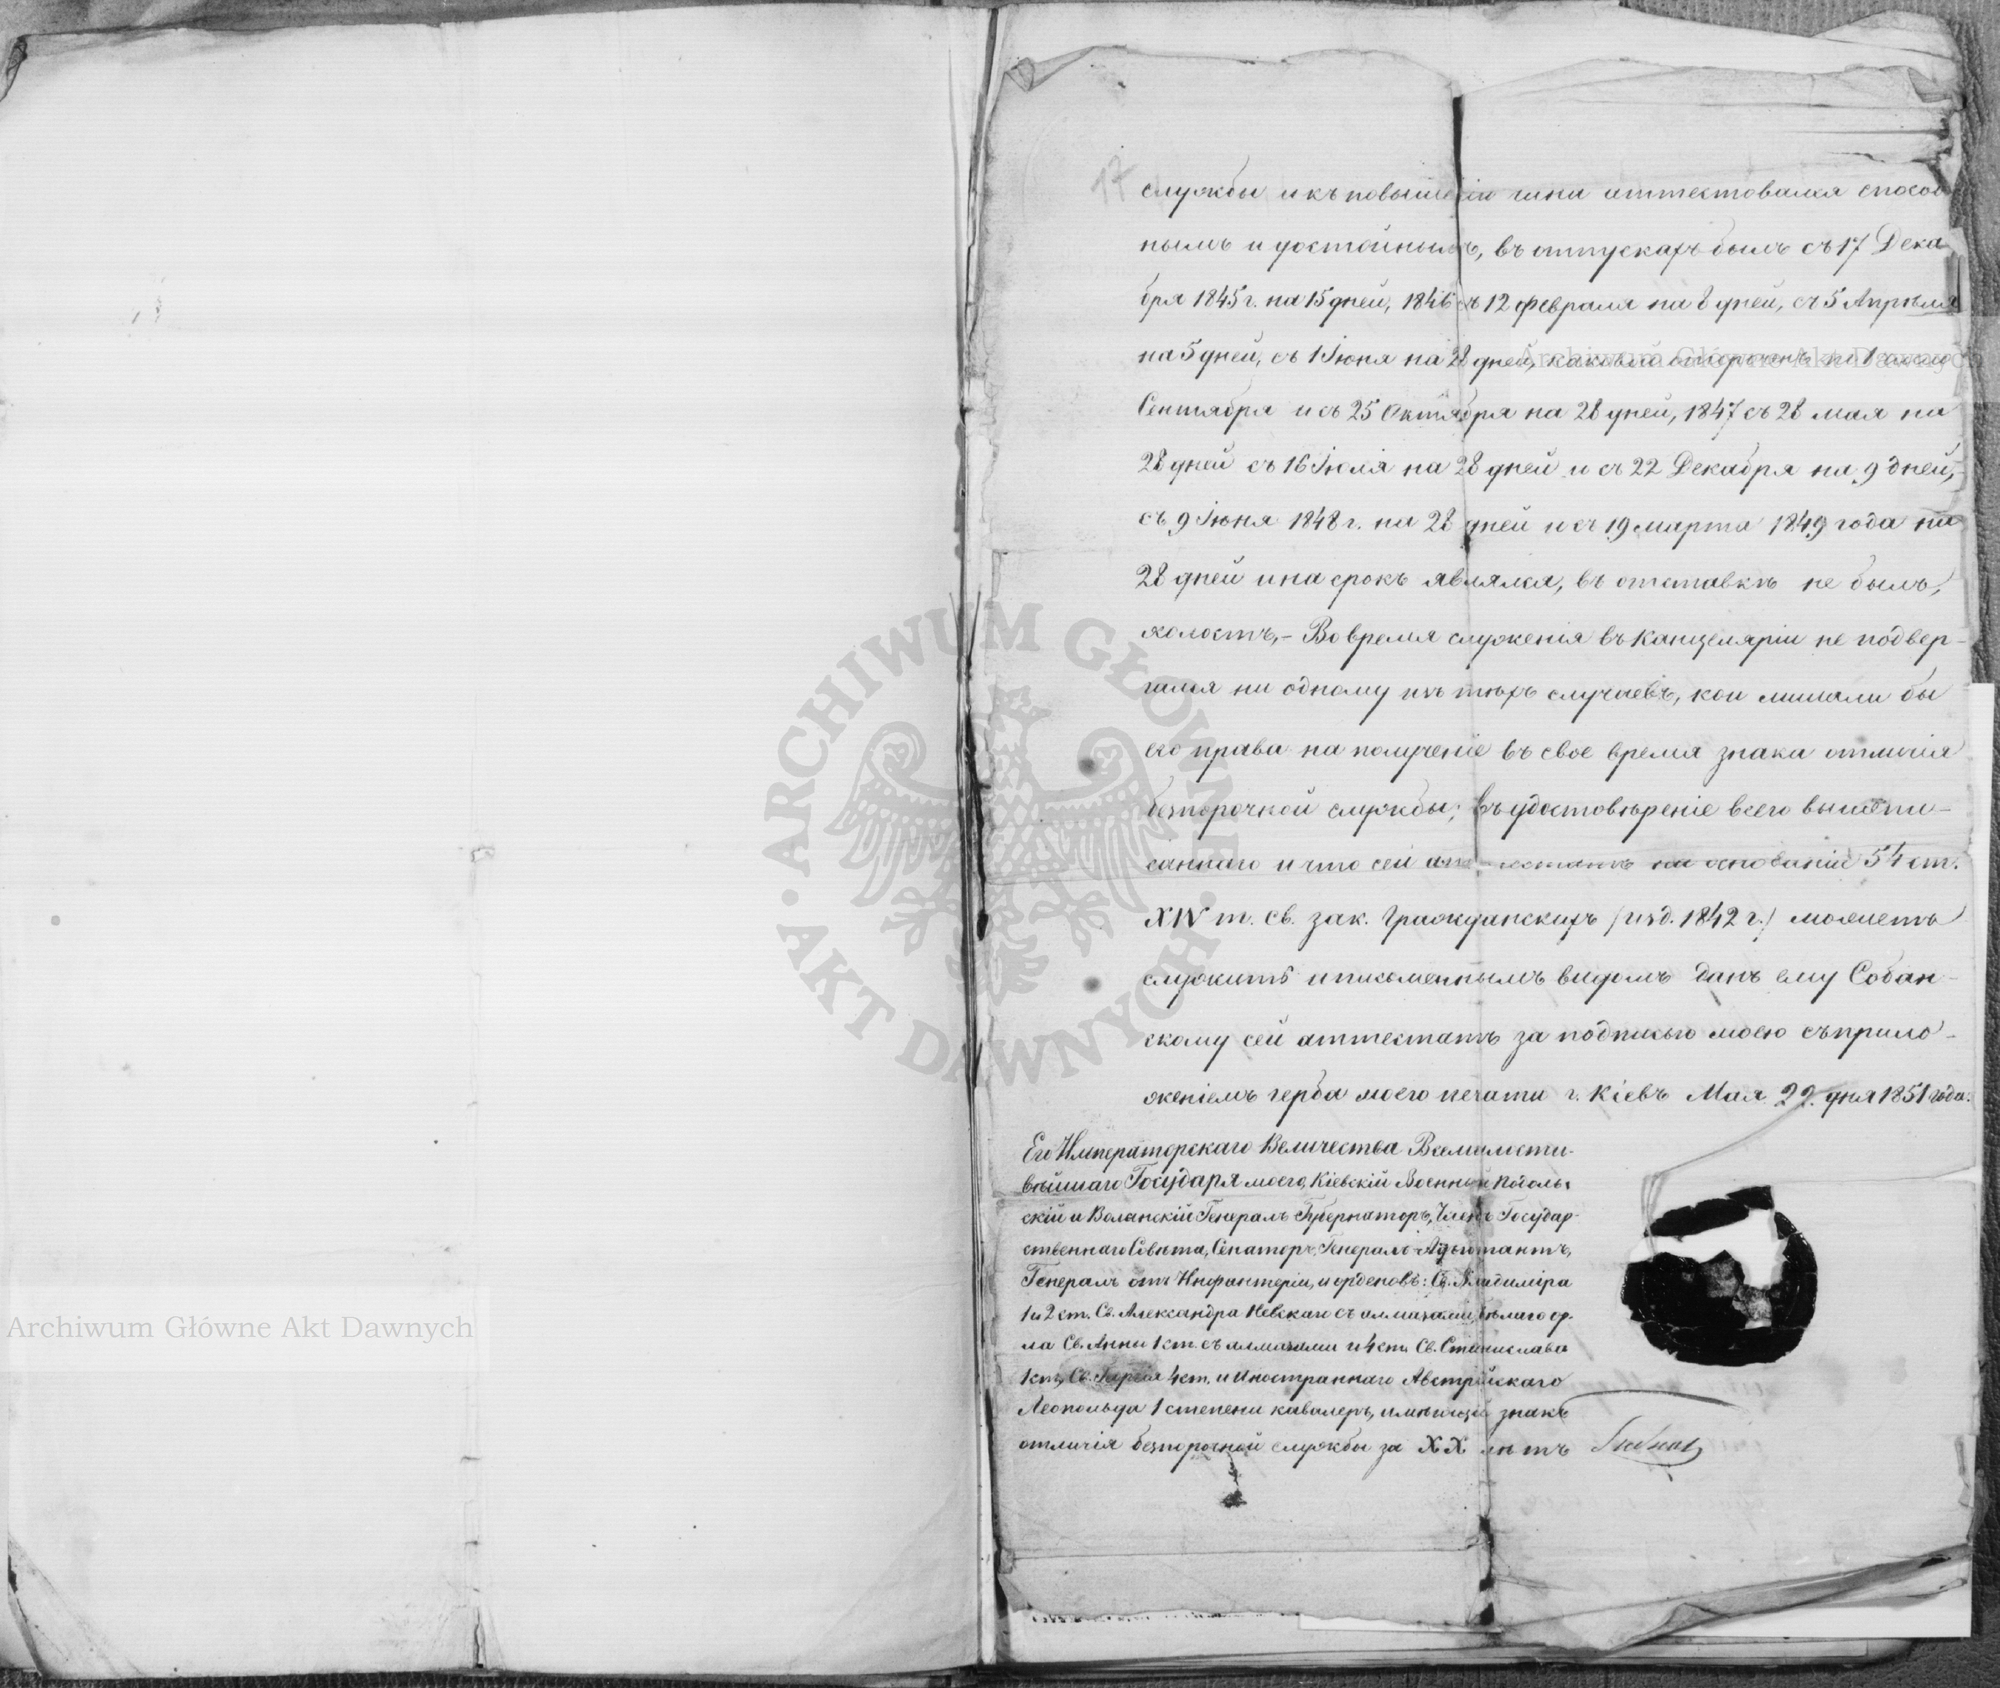 17
службы и къ повышенію чина аттестовался способ
нымъ и достойнымъ, въ отпускахъ былъ съ 17 Дека
бря 1845 г. на 15 дней, 1846 съ 12 февраля на 8 дней, съ 5 Апрѣля
на 5 дней, съ 1 Іюня на 28 дней, каковой отсроченъ по 1 число
Сентября и съ 25 Октября на 28 дней, 1847 съ 28 мая на
28 дней съ 16 Іюля на 28 дней и съ 22 Декабря на 9 дней,
съ 9 Іюня 1848 г. на 28 дней и съ 19 марта 1849 года на
28 дней и на срокъ являлся, въ отставкѣ не былъ,
холостъ,- Во время служенія въ Канцеляріи не подвер-
гался ни одному изъ тѣхъ случаевъ, кои лишали бы
его права на полученіе въ свое время знака отличія
безпорочной службы; въ удостовѣреніе всего вышепи-
саннаго и что сей аттестатъ на основаніи 54 ст.
XIV т. Св. зак. Гражданскихъ /изд. 1842 г./ можетъ
служить и письменнымъ видомъ данъ ему Собан-
скому сей аттестатъ за подписью моею съ прило-
женіемъ герба моего печати г. Кіевъ Мая 22 дня 1851 года.
Его Императорскаго Величества Всемилости-
вѣйшаго Государя моего, Кіевскій Военный Подоль-
скій и Волынскій Генералъ Губернаторъ, Членъ Государ-
ственнаго Совѣта, Сенаторъ, Генералъ-Адъютантъ,
Генералъ отъ Инфантеріи, и орденовъ: Св. Владиміра
1 и 2 ст. Св. Александра Невскаго съ алмазами, бѣлаго ор-
ла Св. Анны 1 ст. съ алмазами и 4 ст. Св. Станислава
1 ст, Св. Георгія 4 ст. и Иностраннаго Австрійскаго
Леопольда 1 степени кавалеръ, имѣющій знакъ
отличія безпорочной службы за XX лѣтъ
Archiwum Główne Akt Dawnych
Archiwum Główne Akt Dawnych
ARCHIWUM GŁÓWNE · AKT DAWNYCH ·